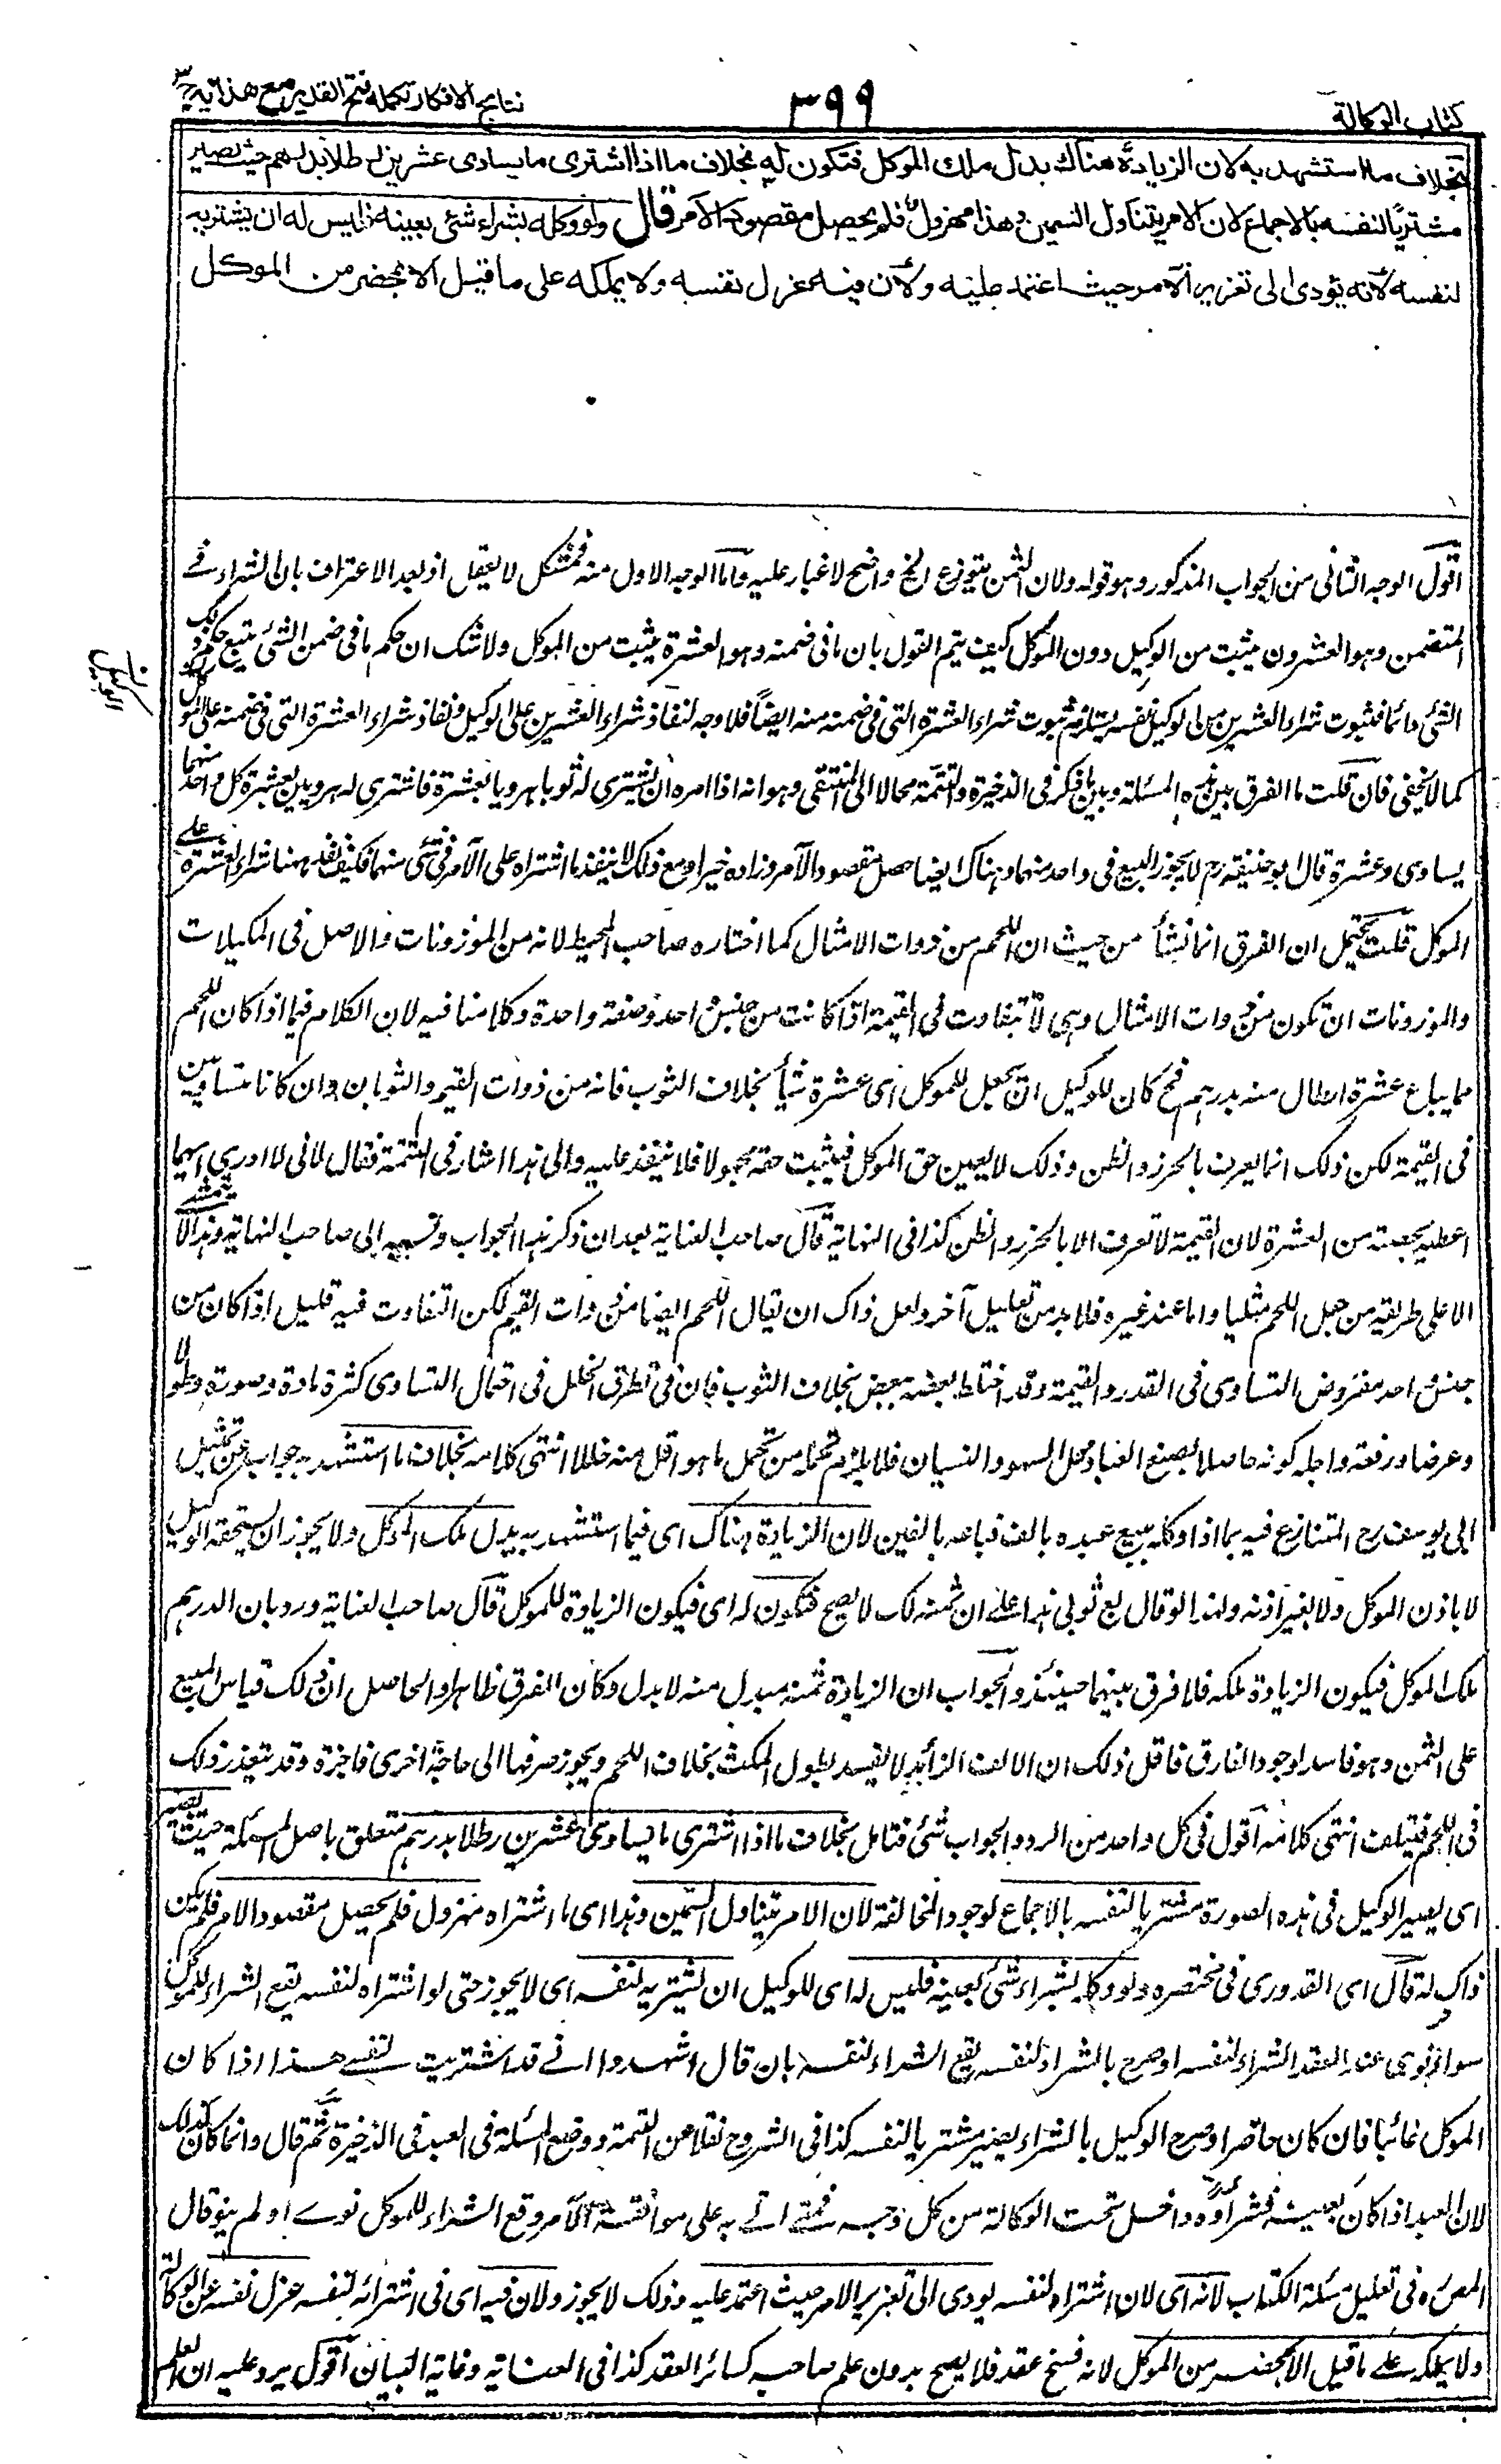 كتاب الوكالة
٣٩٩
نتائج الافكار تكمله فتح القدير مع هدايه ج٣
بخلاف ما استشهد به لان الزيادة هناك بدل ملك الموكل فتكون له بخلاف ما اذا اشترى ما يساوى عشرين رطلا بدرهم حيث يصير
مشتريا لنفسه بالاجماع لان الامر يتناول السمين وهذا مهزول فلم يحصل مقصود الآمر قال ولو وكله بشراء شئ بعينه فليس له ان يشتريه
لنفسه لانه يؤدى الى تغرير الآمر حيث اعتمد عليه ولان فيه عزل نفسه ولا يملكه على ما قيل الا بمحضر من الموكل
اقول الوجه الثانى من الجواب المذكور وهو قوله ولان الثمن يتوزع الخ واضح لا غبار عليه واما الوجه الاول منه فمشكل لا يعقل اذ بعد الاعتراف بان الشراء فى
المتضمن وهو العشرون يثبت من الوكيل دون الموكل كيف يتم القول بان ما فى ضمنه وهو العشرة يثبت من الموكل ولا شك ان حكم ما فى ضمن الشئ يتبع حكم ذلك
الشئ دائما فثبوت شراء العشرين من الوكيل نفسه يستلزم ثبوت شراء العشرة التى فى ضمنه منه ايضاً فلا وجه لنفاذ شراء العشرين على الوكيل ونفاذ شراء العشرة التى فى ضمنه على الموكل
كما لا يخفى فان قلت ما الفرق بين هذه المسئلة وبين ما ذكر فى الذخيرة والتتمة محالا الى المنتقى وهو انه اذا امره ان يشترى له ثوبا هرويا بعشرة فاشترى له هرويين بعشرة كل واحد منهما
يساوى عشرة قال ابو حنيفة رح لا يجوز البيع فى واحد منهما وهناك ايضا حصل مقصود الآمر وزاده خيرا ومع ذلك لا ينفذ ما اشتراه على الآمر فى شئ منهما فكيف نفذ ههنا شراء العشرة على
الموكل قلت يحتمل ان الفرق انما نشأ من حيث ان اللحم من ذوات الامثال كما اختاره صاحب المحيط لانه من الموزونات والاصل فى المكيلات
والموزونات ان تكون من ذوات الامثال وهى لا تتفاوت فى القيمة اذا كانت من جنس واحد وصفة واحدة وكلامنا فيه لان الكلام فيما اذا كان اللحم
مما يباع عشرة ارطال منه بدرهم فح كان للوكيل ان يجعل للموكل اى عشرة شيأ بخلاف الثوب فانه من ذوات القيم والثوبان وان كانا متساويين
فى القيمة لكن ذلك انما يعرف بالحزر والظن وذلك لا يعين حق الموكل فيثبت حقه مجهولا فلا ينفذ عليه والى هذا اشار فى التتمة فقال لانى لا ادرى ايهما
اعطيه بحصته من العشرة لان القيمة لا تعرف الا بالحزر والظن كذا فى النهاية قال صاحب العناية بعد ان ذكر هذا الجواب ونسبه الى صاحب النهاية وهذا لا يتمشى
الا على طريقة من جعل اللحم مثليا واما عند غيره فلا بد من تعليل آخر ولعل ذاك ان يقال اللحم ايضا من ذوات القيم لكن التفاوت فيه قليل اذا كان من
جنس واحد مفروض التساوى فى القدر والقيمة وقد اختلط بعضه ببعض بخلاف الثوب فان فى تطرق الخلل فى احتمال التساوى كثرة مادة وصورة وطولا
وعرضا ورفعة واجله كونه حاصلا بصنع العباد محل السهو والنسيان فلا يلزم تحمله من تحمل ما هو اقل منه خللا انتهى كلامه بخلاف ما استشهد به جواب عن تمثيل
ابى يوسف رح المتنازع فيه بما اذا وكله ببيع عبده بالف فباعه بالفين لان الزيادة هناك اى فيما استشهد به بدل ملك الموكل ولا يجوز ان يستحقه الوكيل
لا باذن الموكل ولا بغير اذنه ولهذا لو قال بع ثوبى هذا على ان ثمنه لك لا يصح فتكون له اى فيكون الزيادة للموكل قال صاحب العناية ورد بان الدرهم
ملك الموكل فيكون الزيادة ملكه فلا فرق بينهما حينئذ والجواب ان الزيادة ثمنه مبدل منه لا بدل وكان الفرق ظاهرا والحاصل ان ذلك قياس المبيع
على الثمن وهو فاسد لوجود الفارق فاقل ذلك ان الالف الزائد لا يفسد بطول المكث بخلاف اللحم ويجوز صرفها الى حاجة اخرى ناجزة وقد يتعذر ذلك
فى اللحم فيتلف انتهى كلامه اقول فى كل واحد من الرد والجواب شئ فتامل بخلاف ما اذا اشترى ما يساوى عشرين رطلا بدرهم متعلق باصل المسئلة حيث يصير
اى يصير الوكيل فى هذه الصورة مشتريا لنفسه بالاجماع لوجود المخالفة لان الامر يتناول السمين وهذا اى ما اشتراه مهزول فلم يحصل مقصود الامر فلم يكن
ذاك له قال اى القدورى فى مختصره ولو وكله بشراء شئ بعينه فليس له اى للوكيل ان يشتريه لنفسه اى لا يجوز حتى لو اشتراه لنفسه يقع الشراء للموكل
سواء نوى عند العقد الشراء لنفسه او صرح بالشراء لنفسه يقع الشراء لنفسه بان قال اشهدوا انى قد اشتريت لنفسى هذا اذا كان
الموكل غائبا فان كان حاضرا وصرح الوكيل بالشراء يصير مشتريا لنفسه كذا فى الشروح نقلا عن التتمة ووضع المسئلة فى العبد فى الذخيرة ثم قال وانما كان كذلك
لان العبد اذا كان بعينه فشراؤه داخل تحت الوكالة من كل وجه فمتى اتى به على موافقة الآمر وقع الشراء للموكل نوى او لم ينو قال
المص ره فى تعليل مسئلة الكتاب لانه اى لان اشتراه لنفسه يودى الى تغرير الامر حيث اعتمد عليه وذلك لا يجوز ولان فيه اى فى اشترائه لنفسه عزل نفسه عن الوكالة
ولا يملكه على ما قيل الا بمحضر من الموكل لانه فسخ عقد فلا يصح بدون علم صاحبه كسائر العقد كذا فى العناية وغاية البيان اقول يرد عليه ان العلم